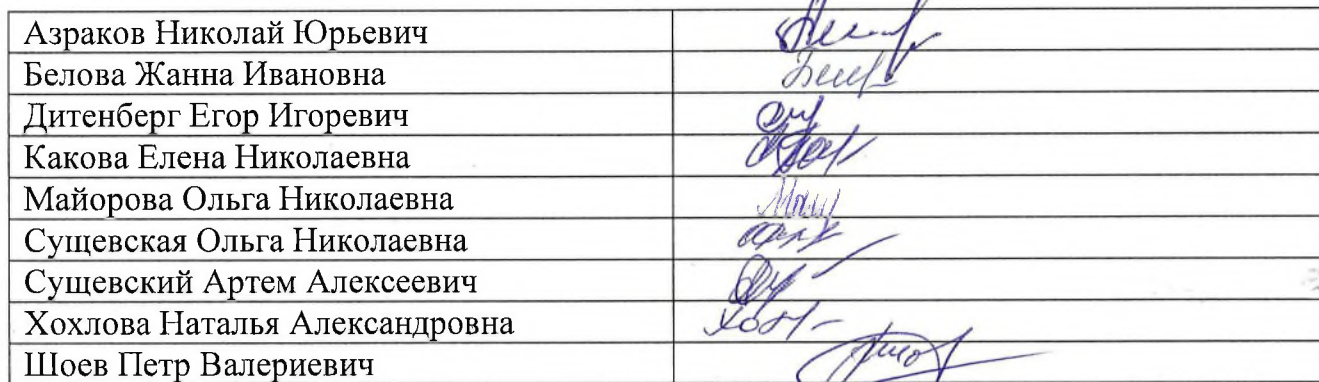 Азраков Николай Юрьевич
Белова Жанна Ивановна
Дитенберг Егор Игоревич
Какова Елена Николаевна
Майорова Ольга Николаевна
Сущевская Ольга Николаевна
Сущевский Артем Алексеевич
Хохлова Наталья Александровна
Шоев Петр Валериевич